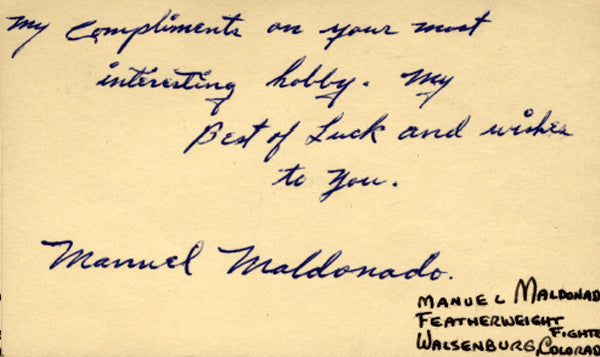 My Compliments on your most
interesting hobby. My
Best of Luck and wishes
to You.
Manuel Maldonado.
MANUEL MALDONAD
FEATHERWEIGHT FIGHTE
WALSENBURG, COLORAD